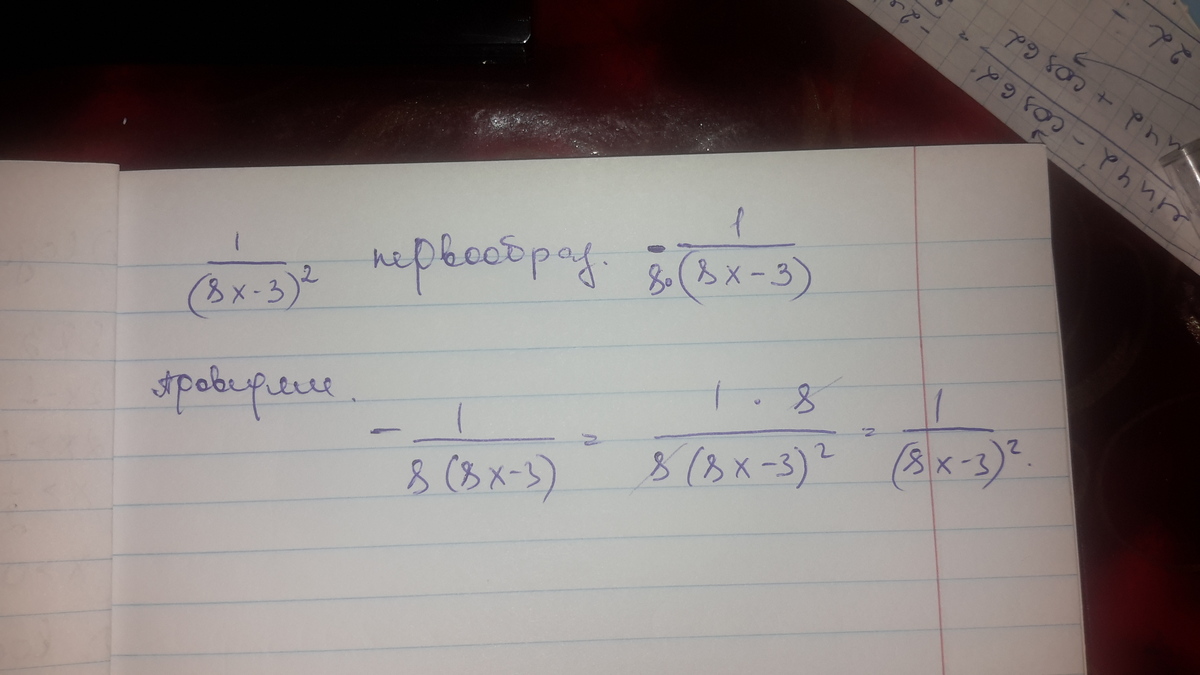 1/(8x-3)² первообраз. -1/(8·(8x-3))
проверяем.
-1/(8(8x-3)) = 1·8/(8(8x-3)²) = 1/(8x-3)².